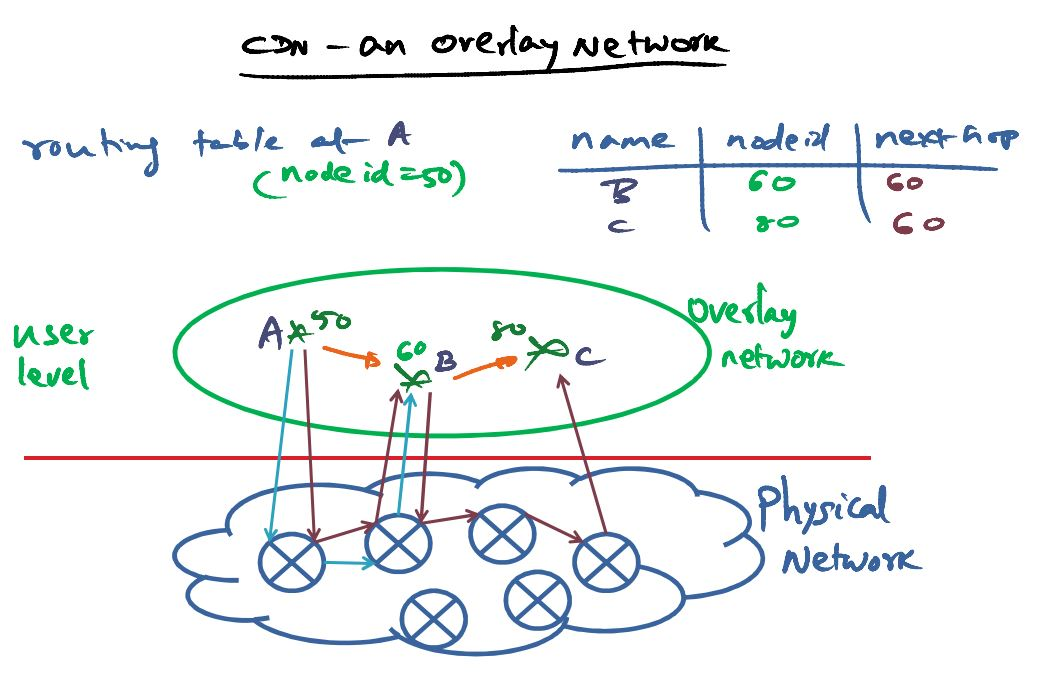 CDN - an overlay Network
routing table at A
(node id = 50)
name nodeid next-hop
B 60 60
C 80 60
user level
A 50
60 B
80 C
Overlay network
Physical Network